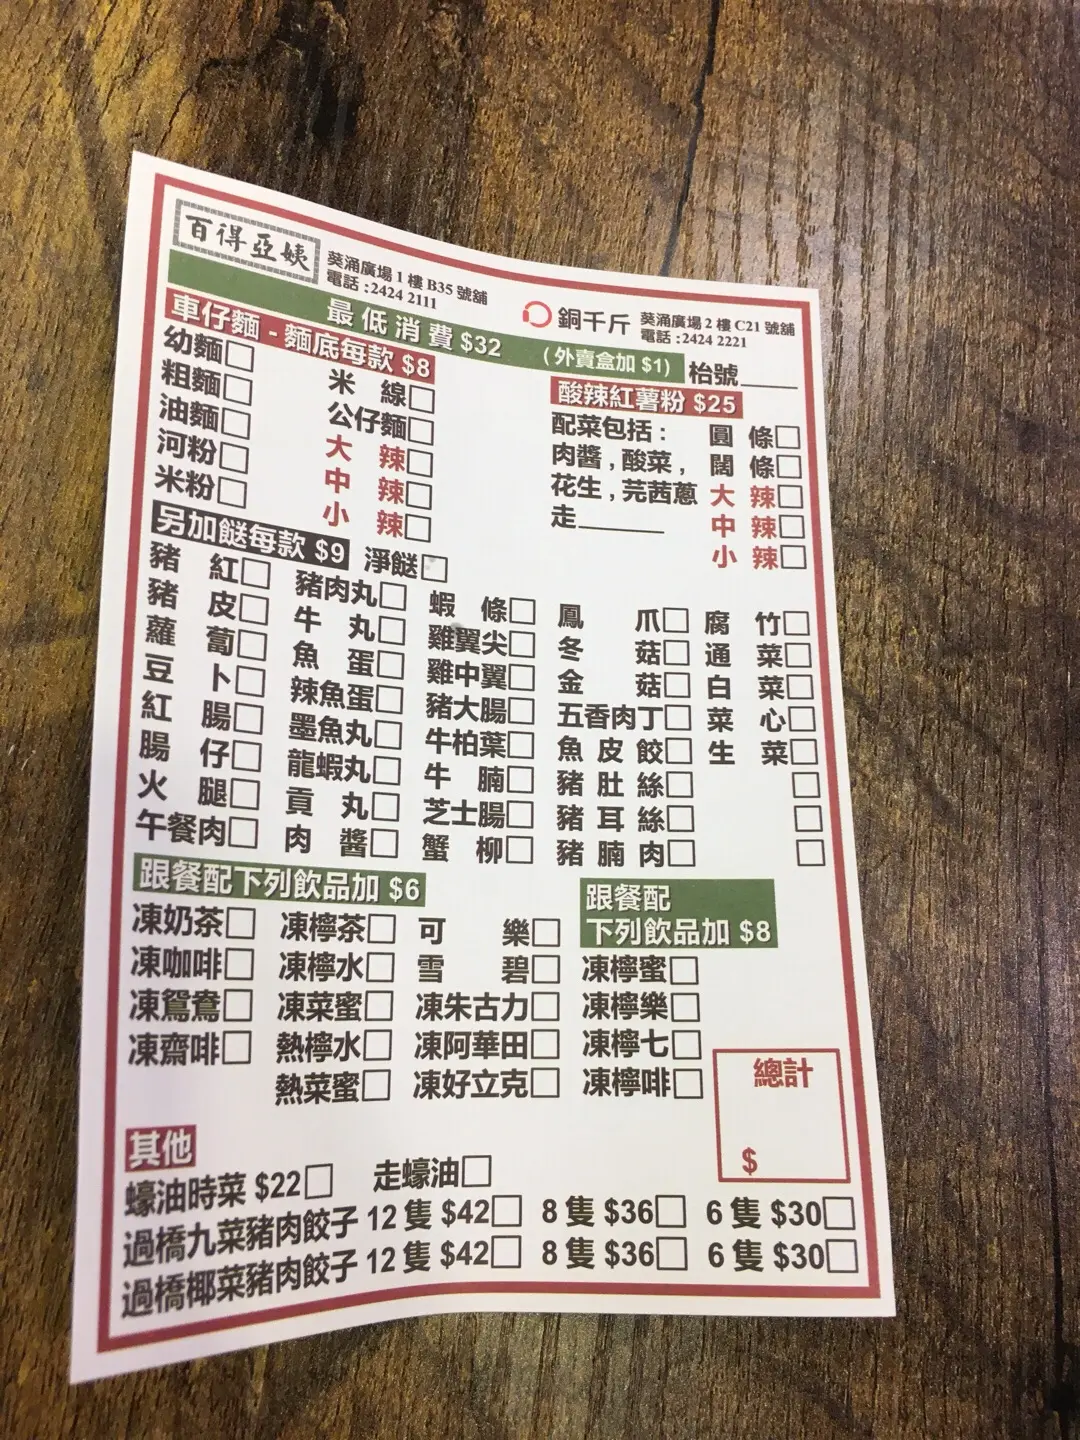 百得亞姨
葵涌廣場 1 樓 B35 號舖
電話 : 2424 2111
銅千斤
葵涌廣場 2 樓 C21 號舖
電話 : 2424 2221
最低消費 $32 (外賣盒加 $1)
枱號
車仔麵 - 麵底每款 $8
幼麵 米線
粗麵 公仔麵
油麵 大辣
河粉 中辣
米粉 小辣
酸辣紅薯粉 $25
配菜包括 : 圓條
肉醬 , 酸菜 , 闊條
花生 , 芫茜蔥 大辣
走 中辣
小辣
另加餸每款 $9 淨餸
豬紅 豬肉丸 蝦條 鳳爪 腐竹
豬皮 牛丸 雞翼尖 冬菇 通菜
蘿蔔 魚蛋 雞中翼 金菇 白菜
豆卜 辣魚蛋 豬大腸 五香肉丁 菜心
紅腸 墨魚丸 牛柏葉 魚皮餃 生菜
腸仔 龍蝦丸 牛腩 豬肚絲
火腿 貢丸 芝士腸 豬耳絲
午餐肉 肉醬 蟹柳 豬腩肉
跟餐配下列飲品加 $6
凍奶茶 凍檸茶 可樂
凍咖啡 凍檸水 雪碧
凍鴛鴦 凍菜蜜 凍朱古力
凍齋啡 熱檸水 凍阿華田
熱菜蜜 凍好立克
跟餐配
下列飲品加 $8
凍檸蜜
凍檸樂
凍檸七
凍檸啡
總計
$
其他
蠔油時菜 $22 走蠔油
過橋九菜豬肉餃子 12 隻 $42 8 隻 $36 6 隻 $30
過橋椰菜豬肉餃子 12 隻 $42 8 隻 $36 6 隻 $30